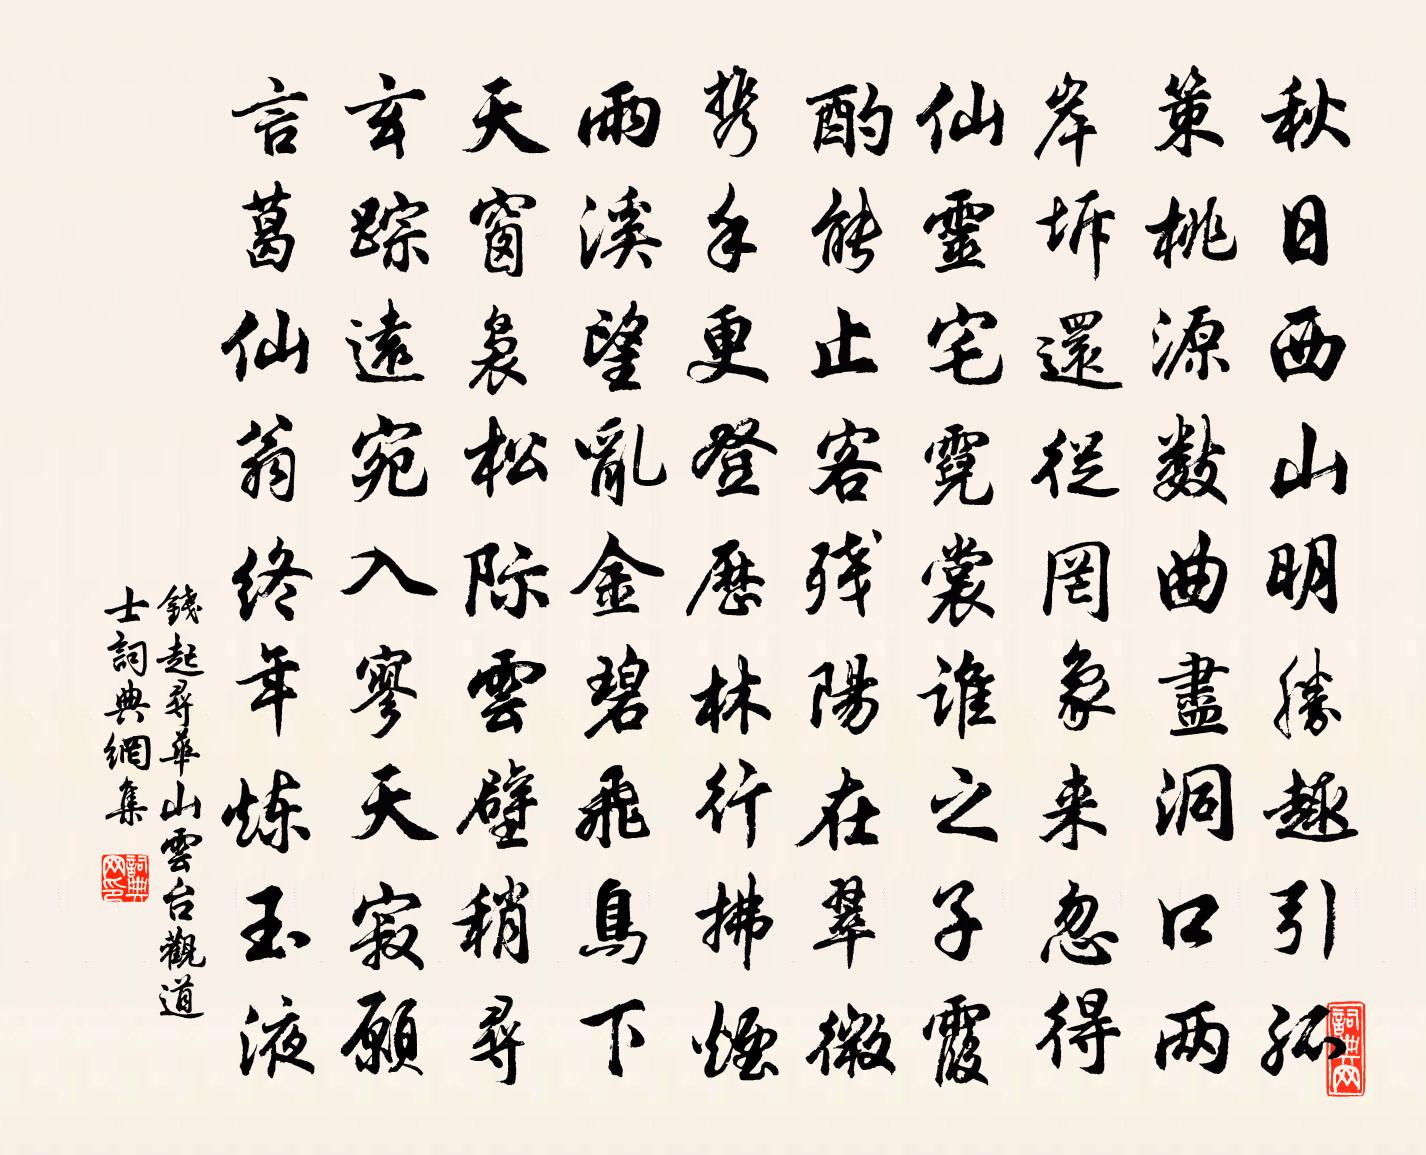 秋日西山明勝趣引孤
策桃源數曲盡洞口两
岸坼還從罔象来忽得
仙靈宅霓裳誰之子霞
酌能止客残陽在翠微
携手更登歷林行拂煙
雨溪望亂金碧飛鳥下
天窗裊松際雲壁稍尋
玄踪遠宛入寥天寂願
言葛仙翁終年炼玉液
錢起尋華山雲台觀道
士詞典網集
詞典网
詞典网印